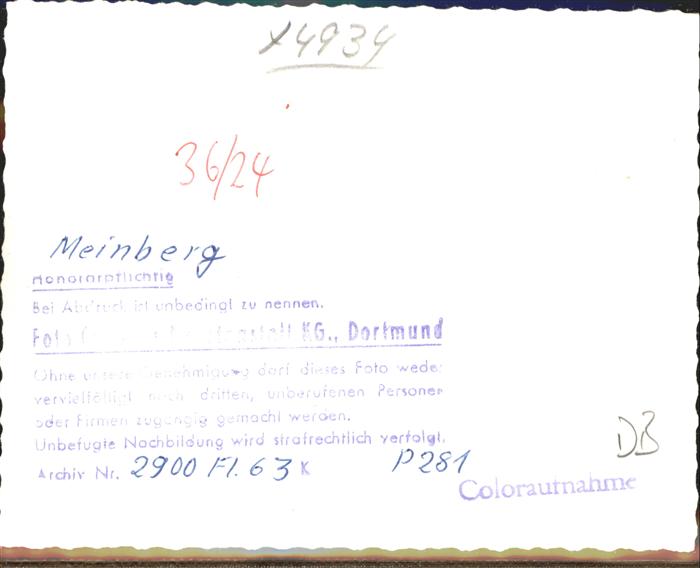 x4934
36/24
Meinberg
Honorarpflichtig
Bei Abdruck ist unbedingt zu nennen.
Foto KG., Dortmund
Ohne unsere Genehmigung darf dieses Foto weder
vervielfältigt noch dritten, unberufenen Personen
oder Firmen zugängig gemacht werden.
Unbefugte Nachbildung wird strafrechtlich verfolgt.
Archiv Nr. 2900 Fl. 63 K P281
DB
Coloraufnahme